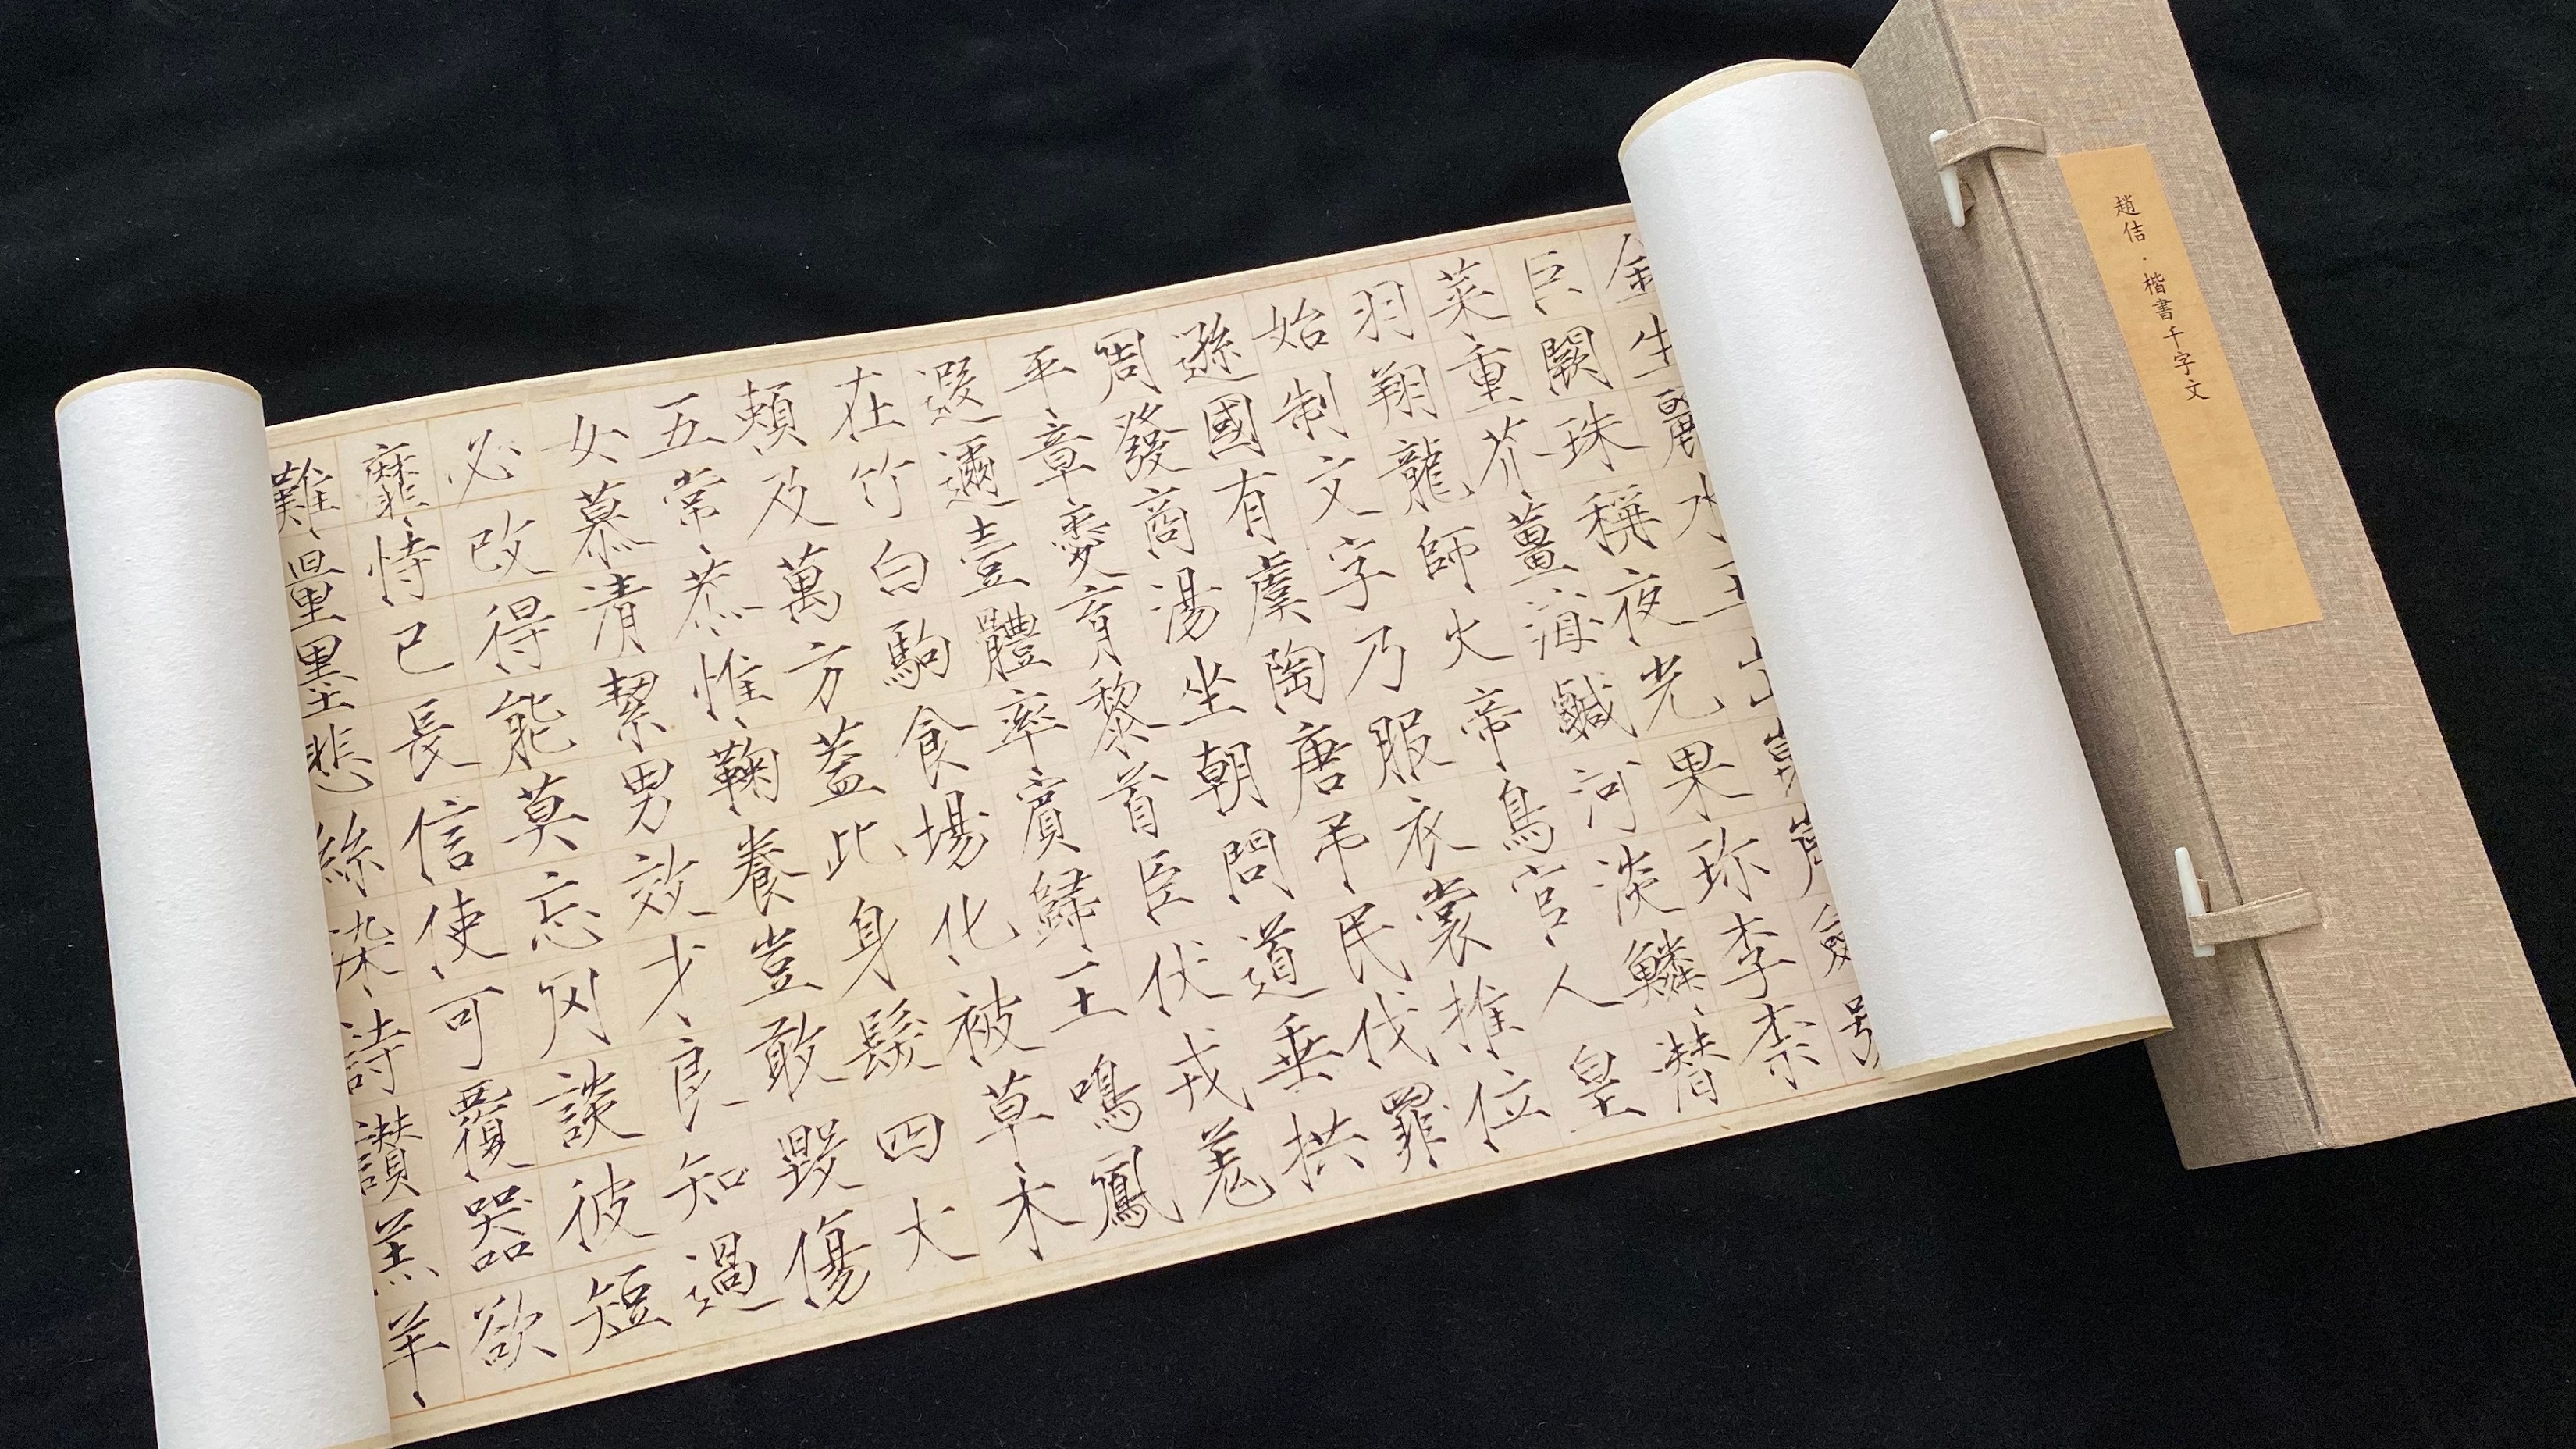 趙佶·楷書千字文
金生麗水玉出崑岡劍號
巨闕珠稱夜光果珎李柰
菜重芥薑海鹹河淡鱗潛
羽翔龍師火帝鳥官人皇
始制文字乃服衣裳推位
遜國有虞陶唐吊民伐罪
周發商湯坐朝問道垂拱
平章愛育黎首臣伏戎羌
遐邇壹體率賓歸王鳴鳳
在竹白駒食場化被草木
賴及萬方蓋此身髮四大
五常恭惟鞠養豈敢毀傷
女慕清絜男效才良知過
必改得能莫忘罔談彼短
靡恃己長信使可覆器欲
難量墨悲絲染詩讚羔羊